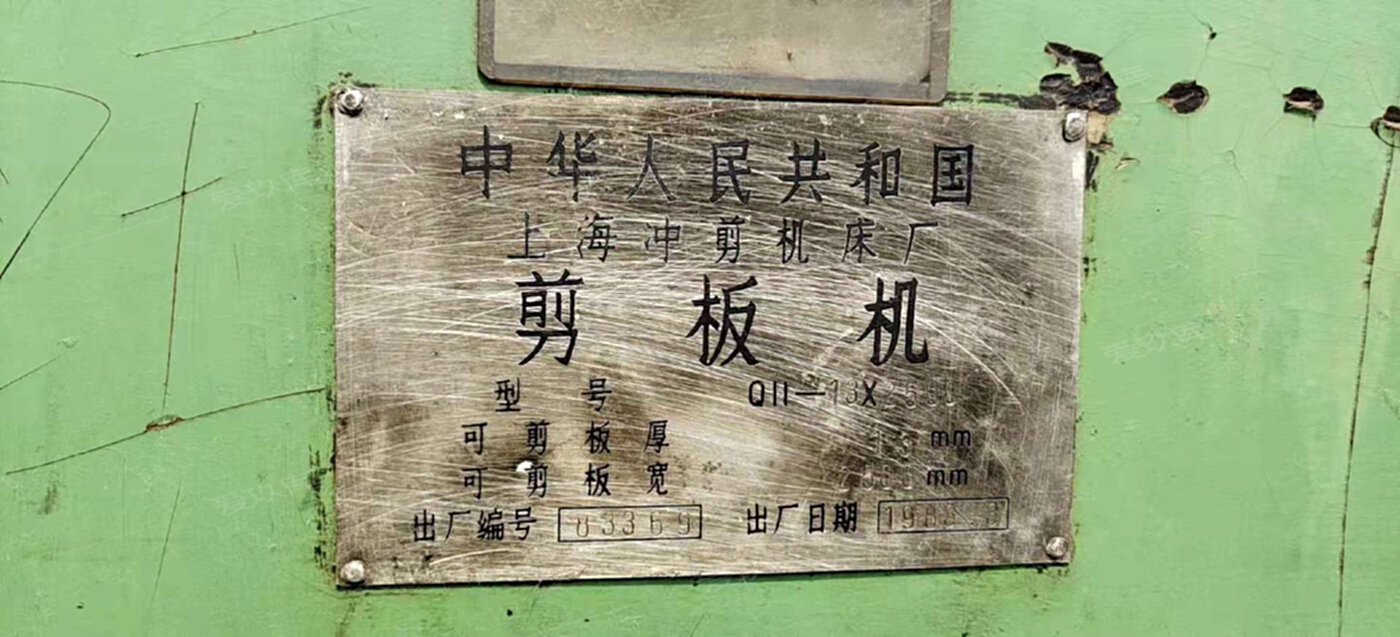 中华人民共和国
上海冲剪机床厂
剪板机
型号 Q11-13X2500
可剪板厚 13 mm
可剪板宽 mm
出厂编号 83369
出厂日期